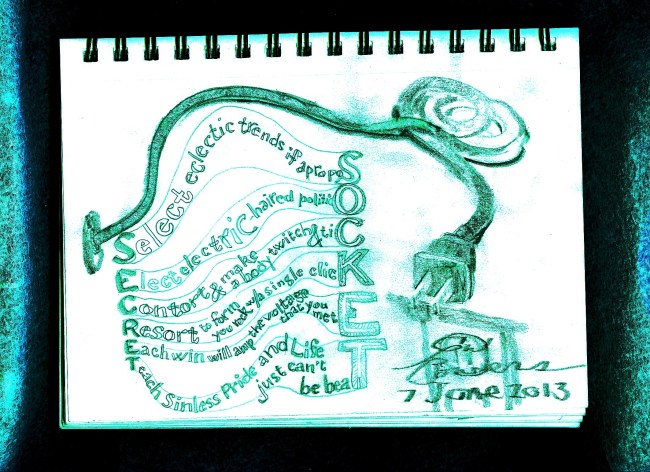 Select eclectic trends if apropoS
Elect electric-haired politicO
Contort & make a body twitch & tiC
Resort to form you lock w/a single clicK
Each win will amp the voltage that you metE
Teach Sinless Pride and Life just can't be beaT
7 June 2013